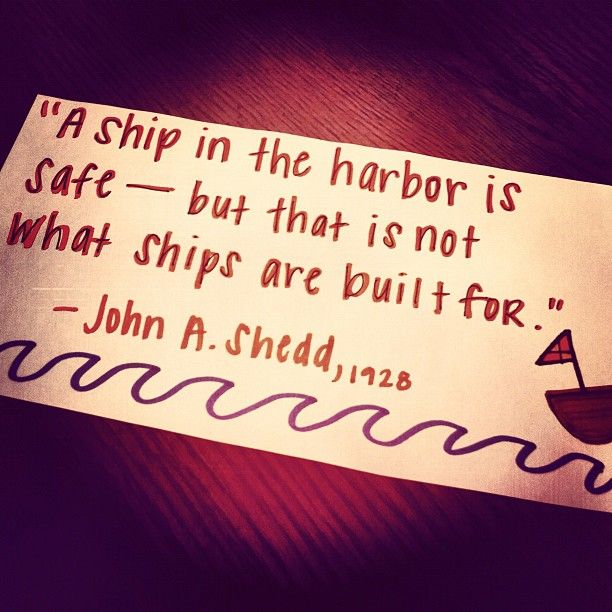 "A ship in the harbor is
safe — but that is not
what ships are built for."
- John A. Shedd, 1928